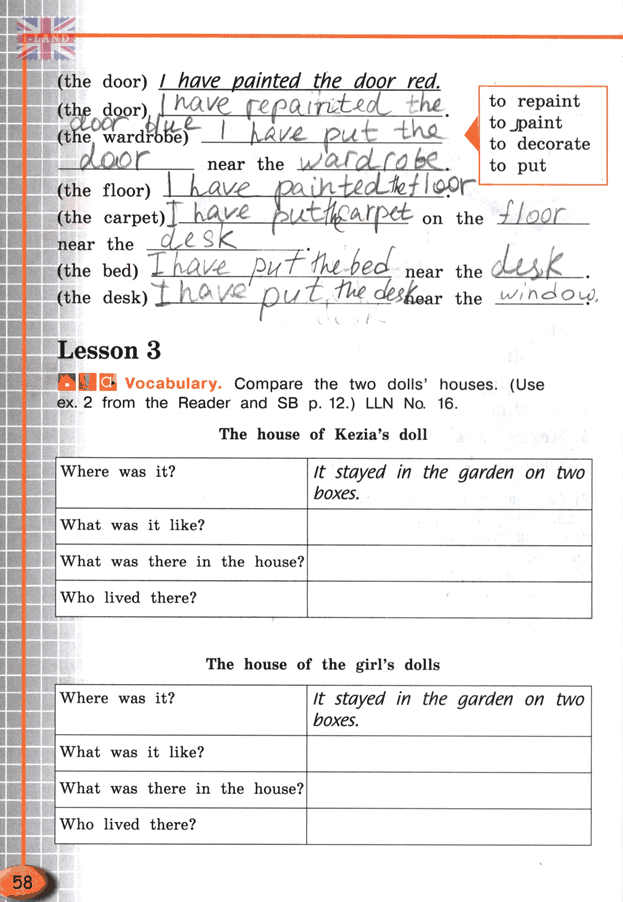 I-LAND
(the door) I have painted the door red.
(the door) I have repainited the
door blue
(the wardrobe) I have put the
door near the wardrobe.
(the floor) I have painted the floor
(the carpet) I have put the carpet on the floor
near the desk.
(the bed) I have put the bed near the desk.
(the desk) I have put the desk near the window.
to repaint
to paint
to decorate
to put
Lesson 3
Vocabulary. Compare the two dolls' houses. (Use
ex. 2 from the Reader and SB p. 12.) LLN No. 16.
The house of Kezia's doll
Where was it? It stayed in the garden on two
boxes.
What was it like?
What was there in the house?
Who lived there?
The house of the girl's dolls
Where was it? It stayed in the garden on two
boxes.
What was it like?
What was there in the house?
Who lived there?
58